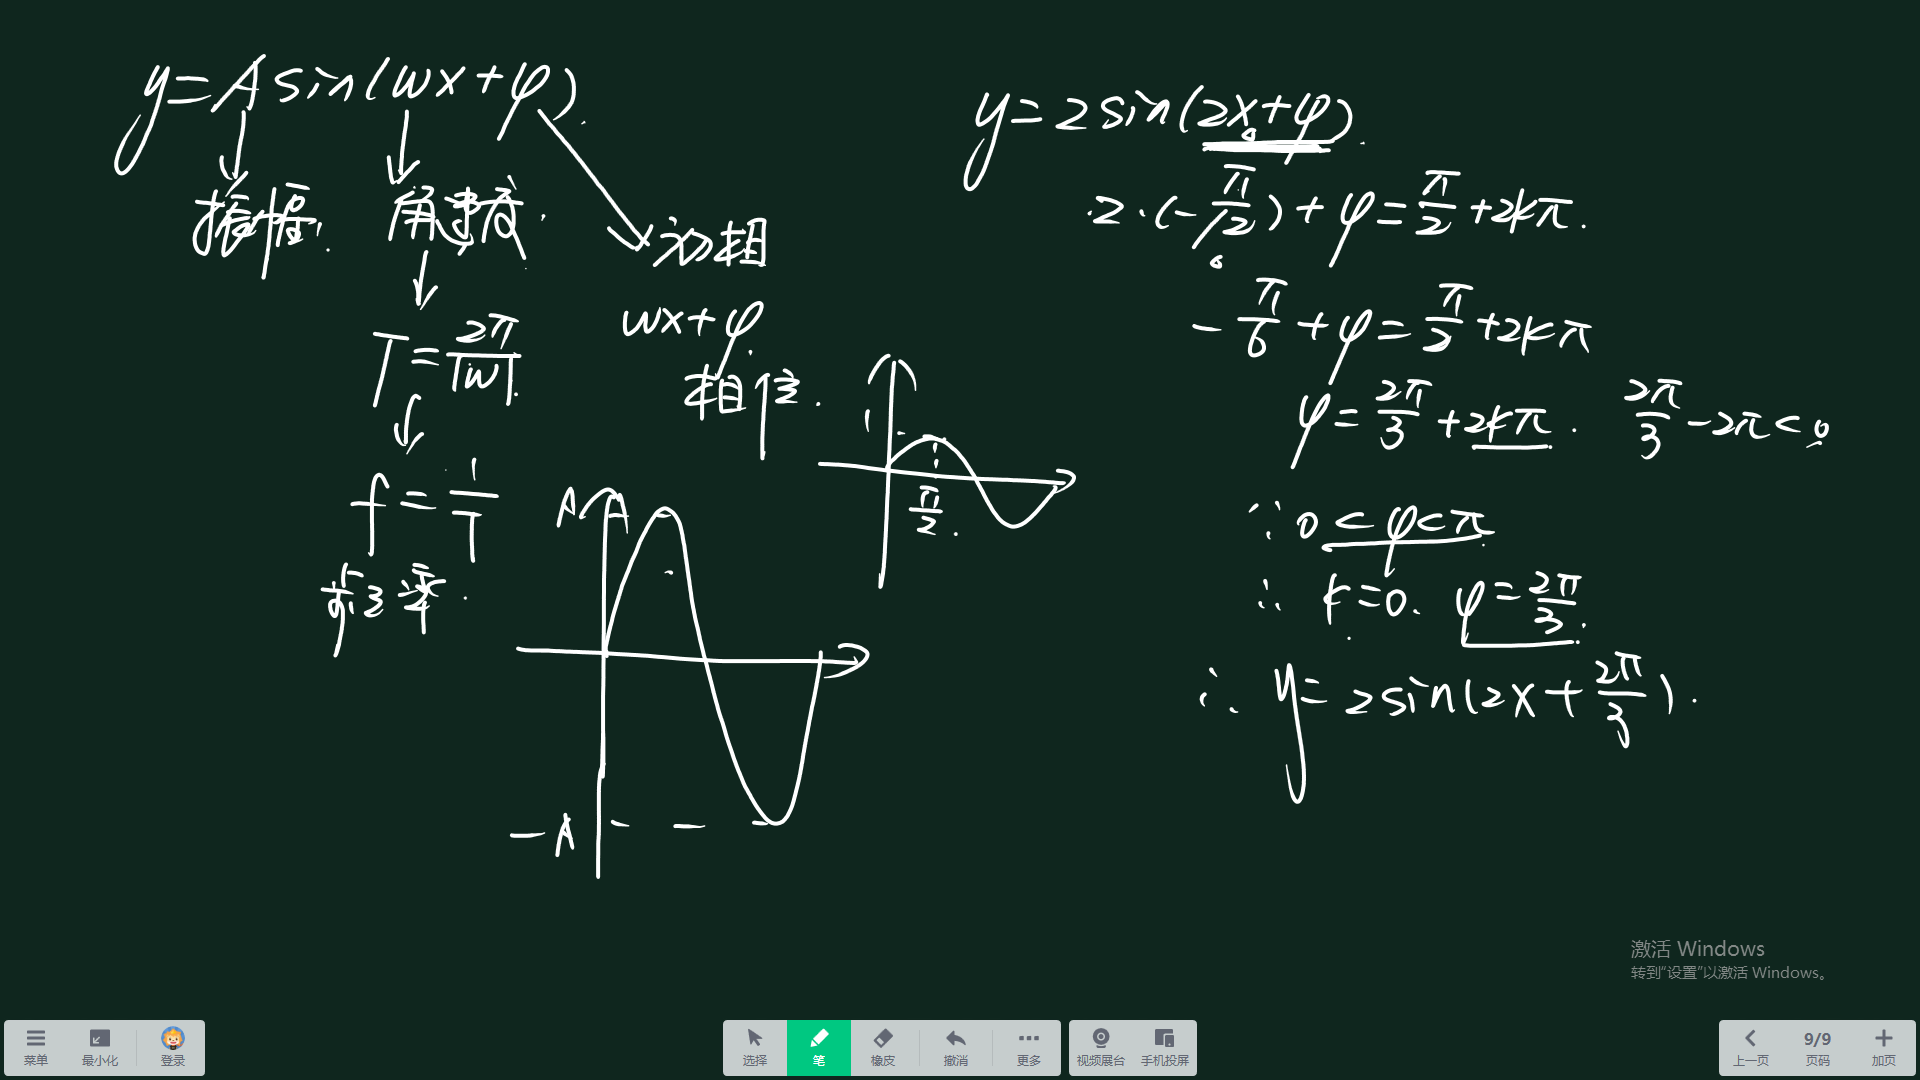 y=Asin(wx+φ).
振幅.
角速度.
初相
T=2π/|w|.
wx+φ.
相位.
f=1/T
频率.
A
-A
1
π/2.
y=2sin(2x+φ).
2·(-π/12)+φ=π/2+2kπ.
-π/6+φ=π/2+2kπ
φ=2π/3+2kπ. 2π/3-2π<0
∵0<φ<π
∴k=0. φ=2π/3.
∴y=2sin(2x+2π/3).
激活 Windows
转到“设置”以激活 Windows。
菜单 最小化 登录 选择 笔 橡皮 撤消 更多 视频展台 手机投屏 上一页 9/9 页码 加页